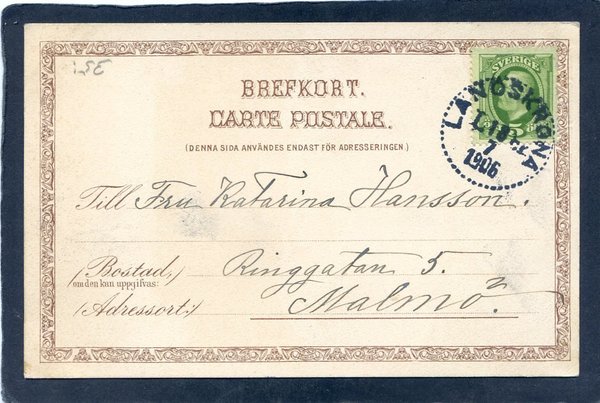 BREFKORT.
CARTE POSTALE.
(DENNA SIDA ANVÄNDES ENDAST FÖR ADRESSERINGEN.)
SVERIGE
LANDSKRONA
7
1906
Till Fru Katarina Hansson.
(Bostad,) Ringgatan 5.
om den kan uppgifvas:
(Adressort:) Malmö.